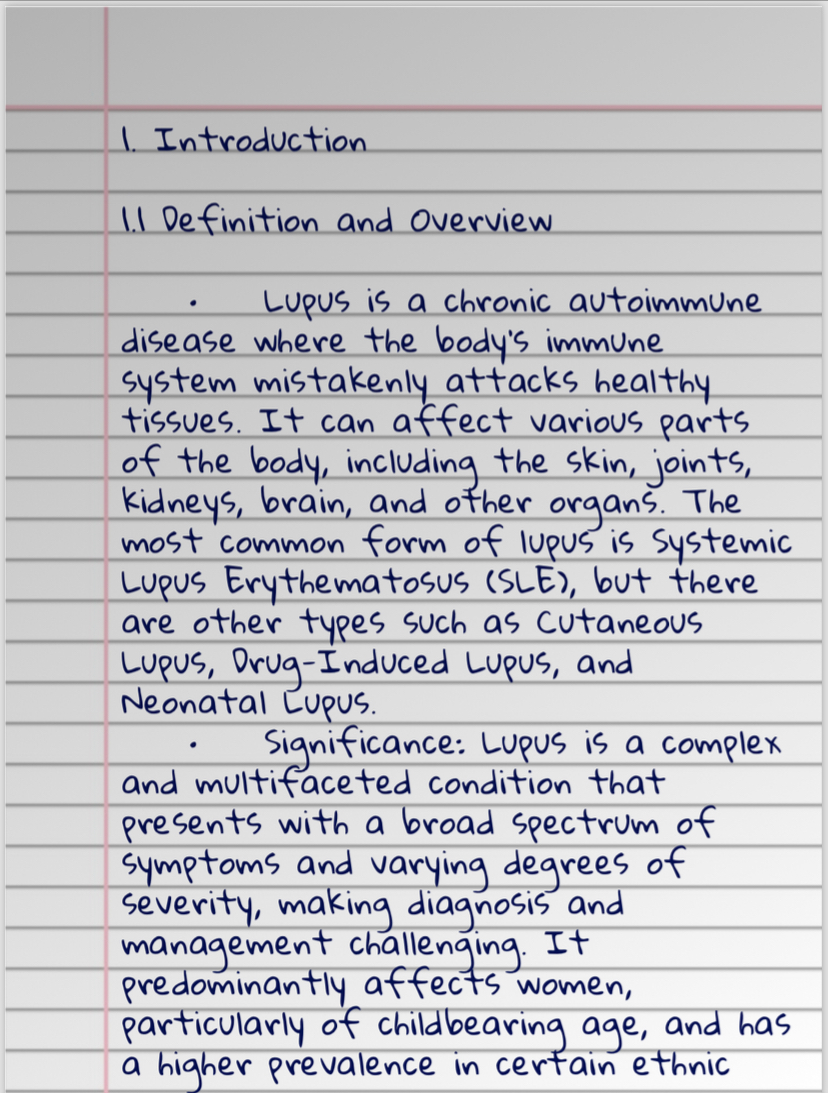 1. Introduction
1.1 Definition and Overview
• Lupus is a chronic autoimmune
disease where the body's immune
system mistakenly attacks healthy
tissues. It can affect various parts
of the body, including the skin, joints,
kidneys, brain, and other organs. The
most common form of lupus is Systemic
Lupus Erythematosus (SLE), but there
are other types such as Cutaneous
Lupus, Drug-Induced Lupus, and
Neonatal Lupus.
• Significance: Lupus is a complex
and multifaceted condition that
presents with a broad spectrum of
symptoms and varying degrees of
severity, making diagnosis and
management challenging. It
predominantly affects women,
particularly of childbearing age, and has
a higher prevalence in certain ethnic